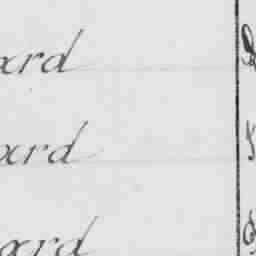 ard
ard
ard